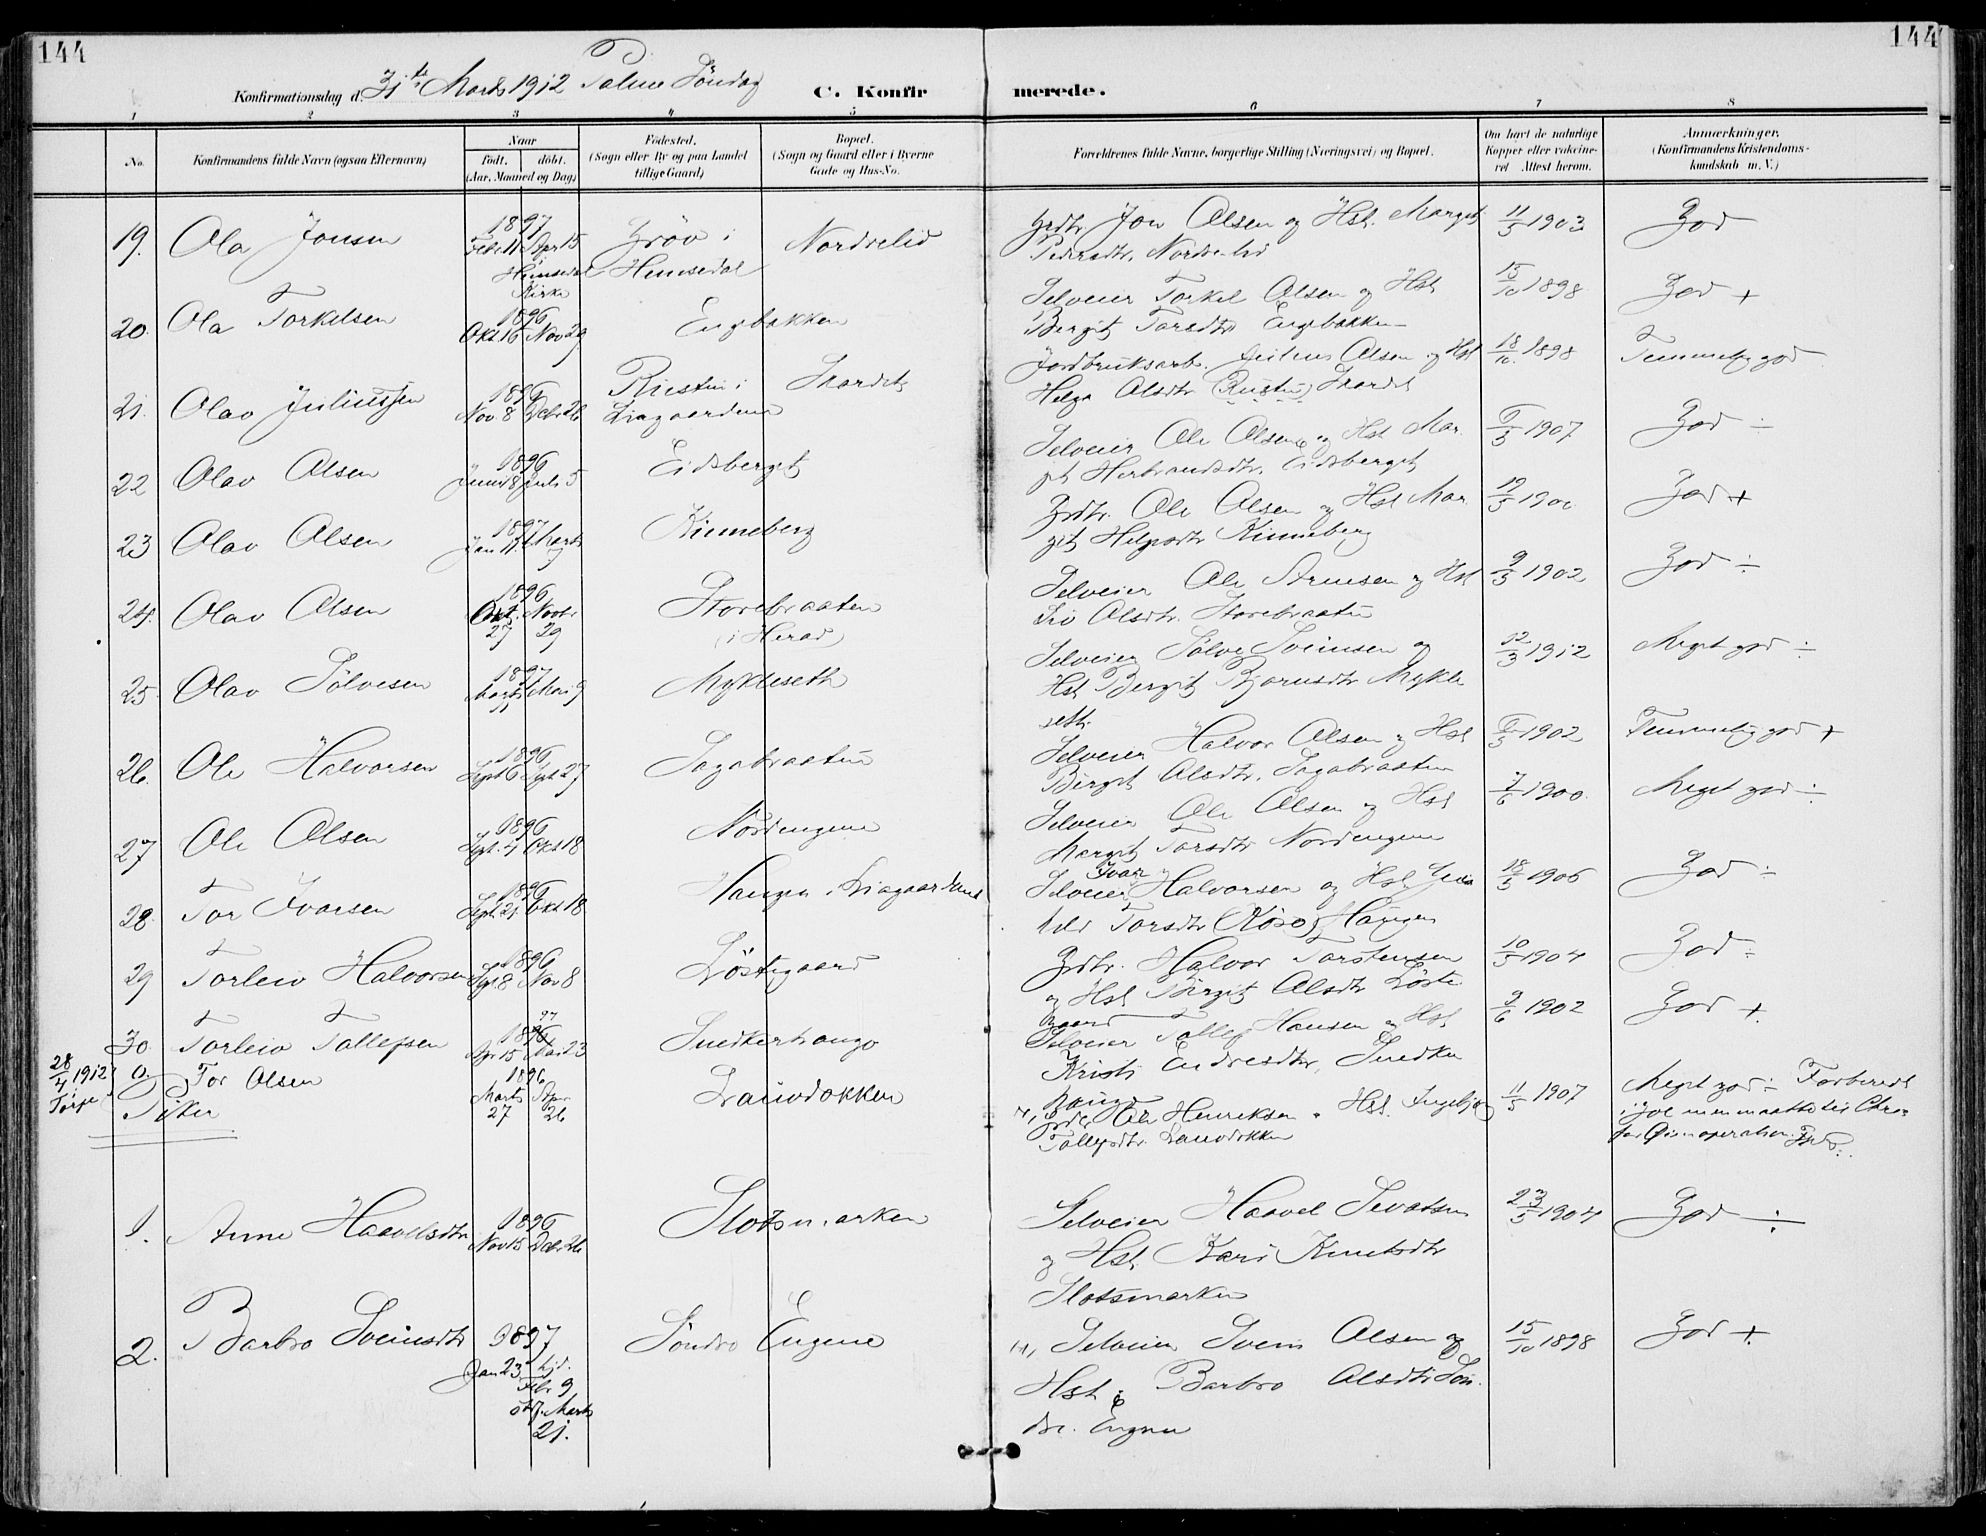 144
144
Konfirmationsdag d. 31te Marts 1912 Palme Söndag
C. Konfirmerede.
1 2 3 4 5 6 7 8
No.
Konfirmandens fulde Navn (ogsaa Efternavn)
Naar
födt. döbt.
(Aar, Maaned og Dag)
Födested.
(Sogn eller By og paa Landet
tillige Gaard)
Bopæl.
(Sogn og Gaard eller i Byerne
Gade og Hus-No.
Forældrenes fulde Navne, borgerlige Stilling (Næringsvei) og Bopæl.
Om havt de naturlige
Kopper eller vakcine-
ret Attest herom.
Anmærkninger.
(Konfirmandens Kristendoms-
kundskab m. V.)
19. Ola Jonsen 1897 Febr 11 Apr 15 Hemsedal Kirke Gröv i Hemsedal Nordrelid
Grdbr Jon Olsen og Hst. Margit Pedersdtr. Nordrelid 11/5 1903 God
20. Ola Torkelsen 1896 Okt 16 Nov 29 Engebakken
Selveier Torkel Olsen og Hst Bergit Torsdtr Engebakken 15/10 1898 God +
21. Olav Juliussen 1896 Nov 8 Debr 26 Rustin i Liagaardene Skardet
Jordbruksarb. Julius Olsen og Hst Helga Olsdtr (Rustin) Skardet 18/10 1898 Temmelig god
22 Olav Olsen 1896 Juni 8 Juli 5 Eidsberget
Selveier Ole Olsen og Hst Margit Herbrandsdtr. Eidsberget 5/5 1907 God ÷
23 Olav Olsen 1897 Jan 11. Marts 9 Kinneberg
Grdbr. Ole Olsen og Hst Margit Helgesdtr Kinneberg 19/5 1900 God +
24. Olav Olsen 1896 Okt. 27 Novbr 29 Storebraaten (i Herad)
Selveier Ole Arnesen og Hst Liv Olsdtr. Storebraaten 9/5 1902 God ÷
25. Olav Sölvesen 1897 Marts Mai 9 Mykleseth
Selveier Sölve Svensen og Hst Bergit Bjornsdtr Mykleseth. 12/3 1912 Meget god ÷
26. Ole Halvorsen 1896 Sept 6 Sept 27 Sagabraaten
Selveier Halvor Olsen og Hst Birgit Olsdtr. Sagabraaten 1902 Temmelig god +
27 Ole Olsen 1896 Sept. 4 Okt 18 Nordengene
Selveier Ole Olsen og Hst Margit Torsdtr Nordengene 7/6 1900. Meget god ÷
28. Tor Ivarsen 1896 Sept 21 Okt 18 Haugen i Liagaardene
Selveier Ivar Halvorsen og Hst Torsdtr Haugen 18/5 1906 God ÷
29 Torleiv Halvorsen 1896 Sept 8 Nov 8 Löstegaard
Grdbr. Halvor Torstensen og Hst Birgit Olsdtr Löstegaard 10/5 1904 God ÷
30 Torleiv Tollefsen 1896 97 Apr 15 Mai 23 Snedkerhaugo
Selveier Tollef Hansen og Hst Kristi Endresdtr, Snedkerhaugo 9/6 1902 God +
28/4 1912 Torpe a. Tor Olsen 1896 Marts 27 Apr 26 Lauvdokken
Grdbr Ole Henriksen & Hst. Ingebjør Tollefsdtr. Lauvdokken 11/5 1907 Meget god ÷ Forberedt
Piker
1. Anne Haavelsdtr 1896 Nov 15 Debr 26 Slotsmarken
Selveier Haavel Sevatsen og Hst Kari Knutsdtr Slotsmarken 23/5 1904 God ÷
2. Barbro Sveinsdtr 1897 Jan 23 hjd. Febr 9 Marts 21. Söndre Engene
Selveier Svein Olsen og Hst Barbro Olsdtr Söndre. Engene 15/10 1898 God +